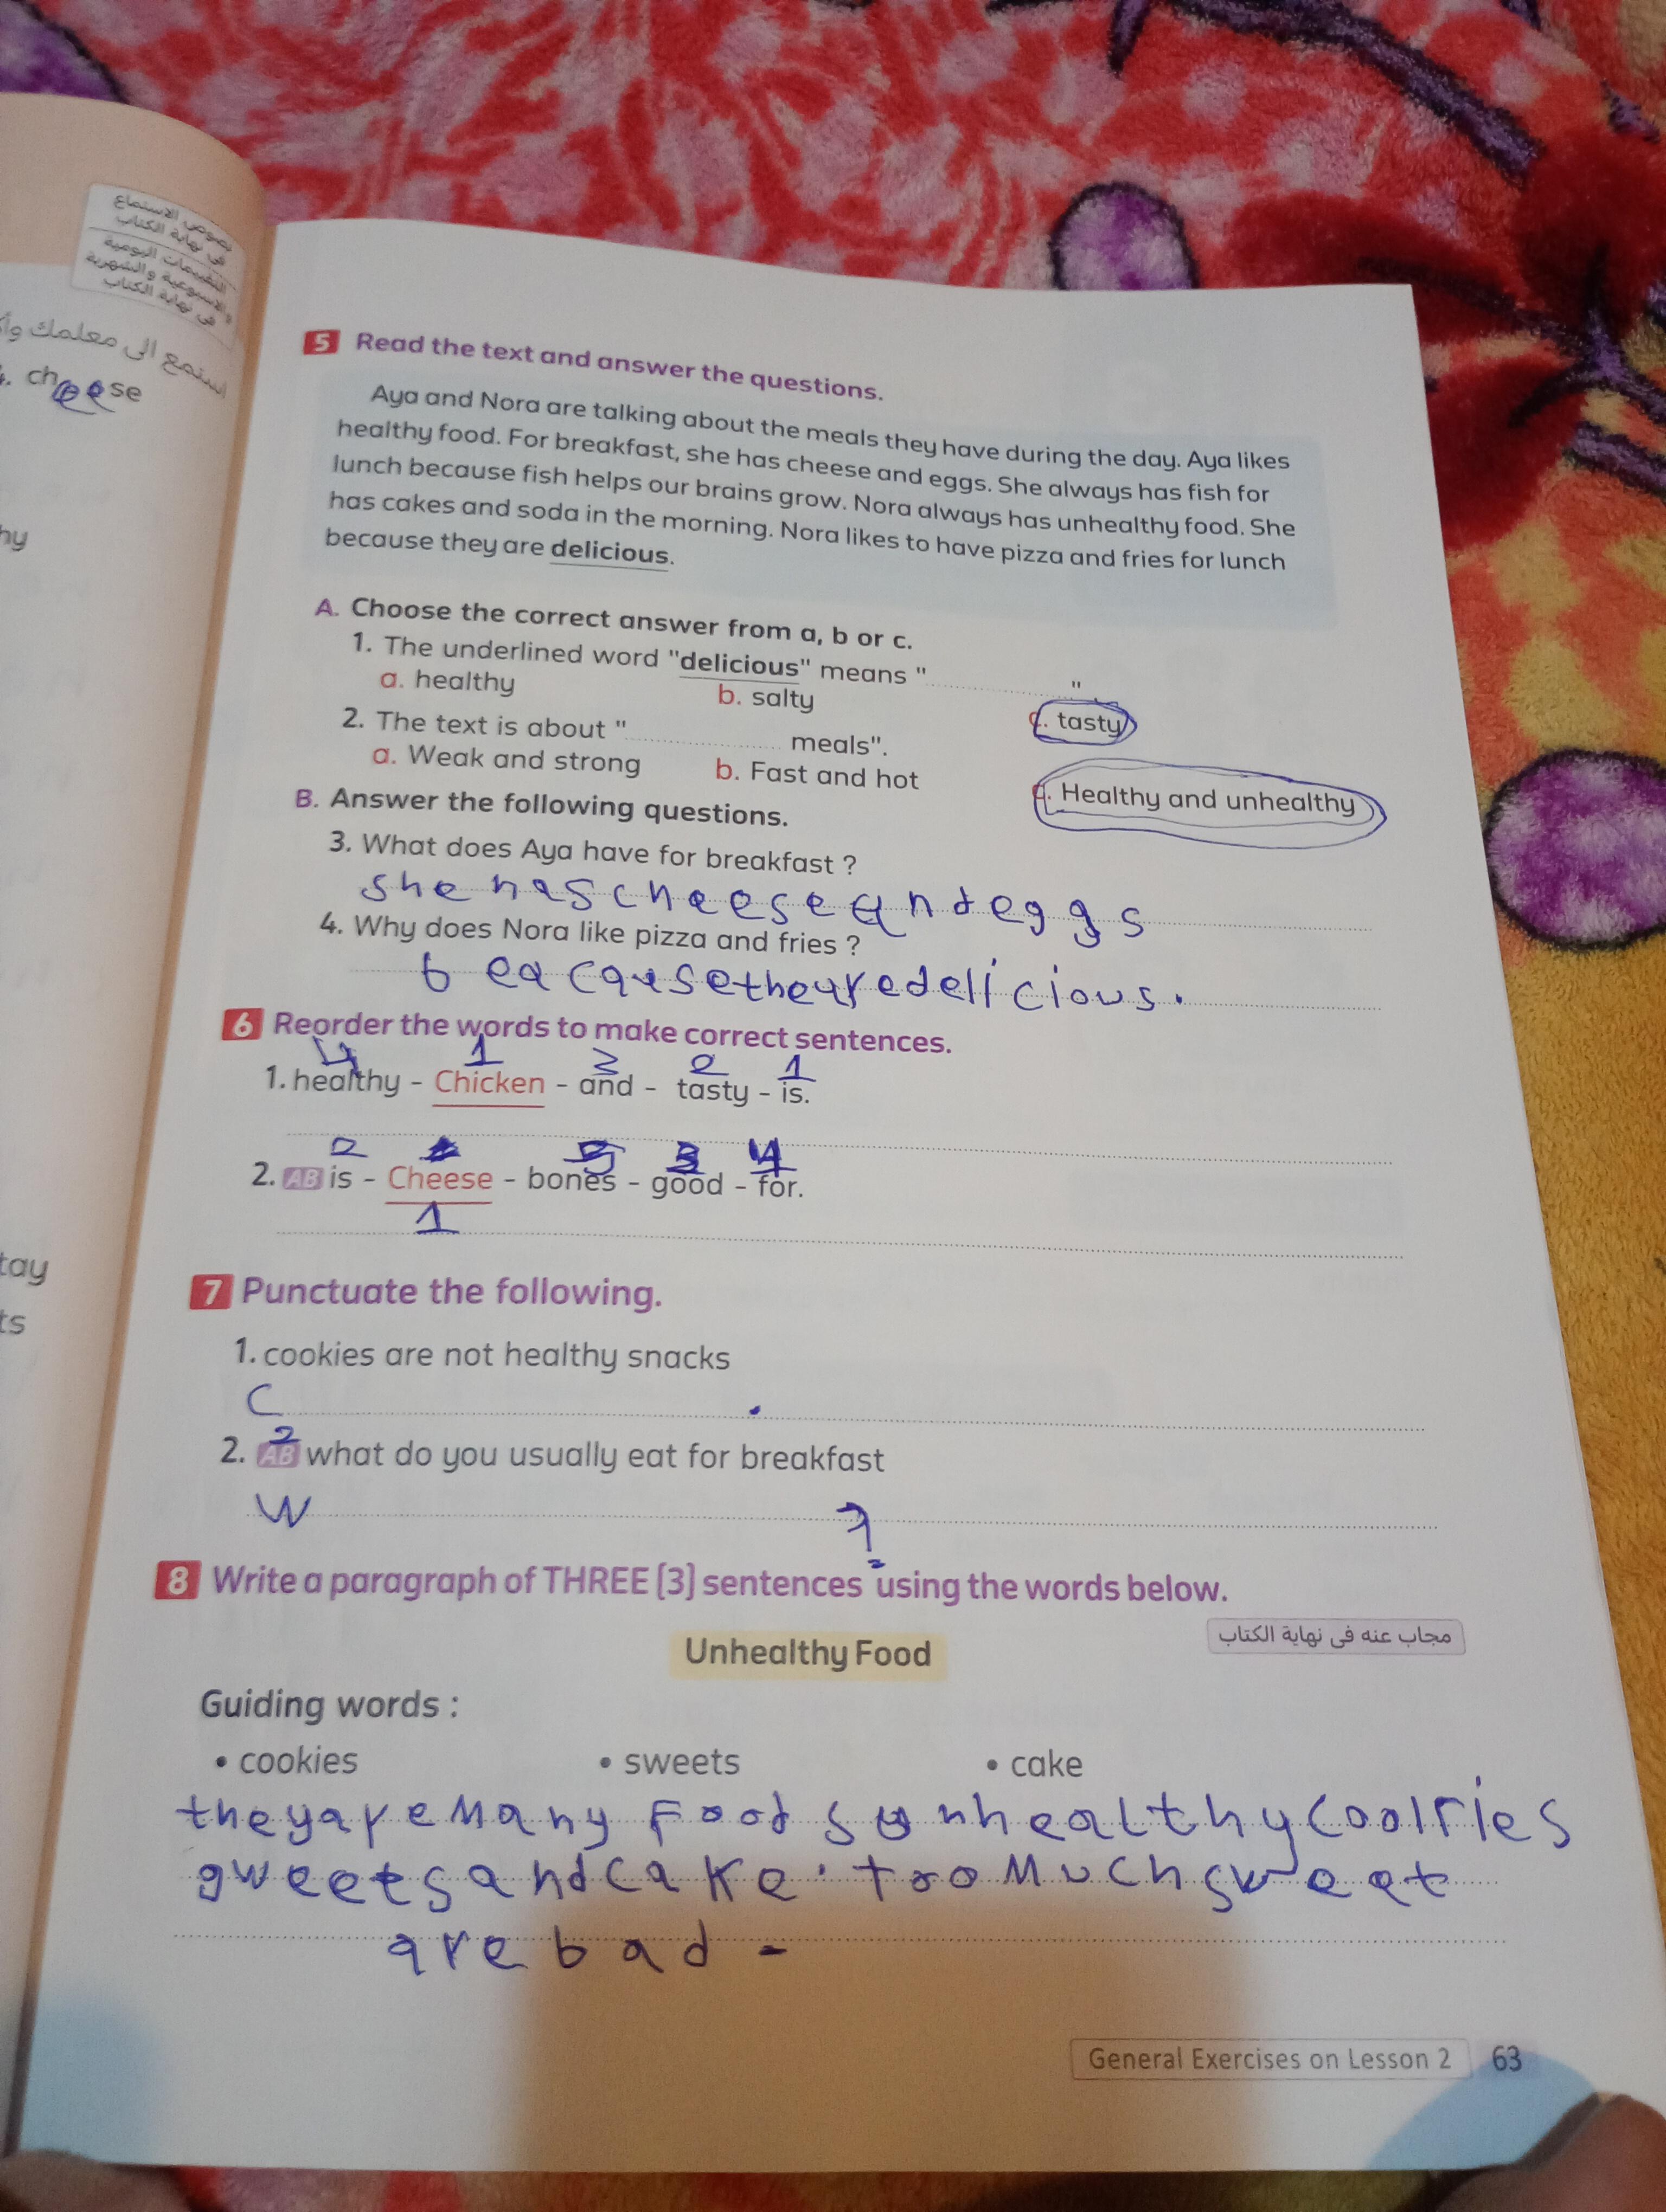 نصوص الاستماع
في نهاية الكتاب
التقييمات اليومية
والأسبوعية والشهرية
في نهاية الكتاب
استمع الى معلمك
cheese
hy
tay
ts
5 Read the text and answer the questions.
Aya and Nora are talking about the meals they have during the day. Aya likes
healthy food. For breakfast, she has cheese and eggs. She always has fish for
lunch because fish helps our brains grow. Nora always has unhealthy food. She
has cakes and soda in the morning. Nora likes to have pizza and fries for lunch
because they are delicious.
A. Choose the correct answer from a, b or c.
1. The underlined word "delicious" means " "
a. healthy b. salty c. tasty
2. The text is about " meals".
a. Weak and strong b. Fast and hot c. Healthy and unhealthy
B. Answer the following questions.
3. What does Aya have for breakfast ?
she has cheese and eggs
4. Why does Nora like pizza and fries ?
beacause theyre delicious.
6 Reorder the words to make correct sentences.
4 1 3 2 1
1. healthy - Chicken - and - tasty - is.
2 5 3 4
2. AB is - Cheese - bones - good - for.
1
7 Punctuate the following.
1. cookies are not healthy snacks
C .
2
2. AB what do you usually eat for breakfast
W ?
8 Write a paragraph of THREE (3) sentences using the words below.
مجاب عنه في نهاية الكتاب
Unhealthy Food
Guiding words :
• cookies • sweets • cake
they are many foods unhealthy cookies
sweets and cake. too much sweet
are bad -
General Exercises on Lesson 2 63